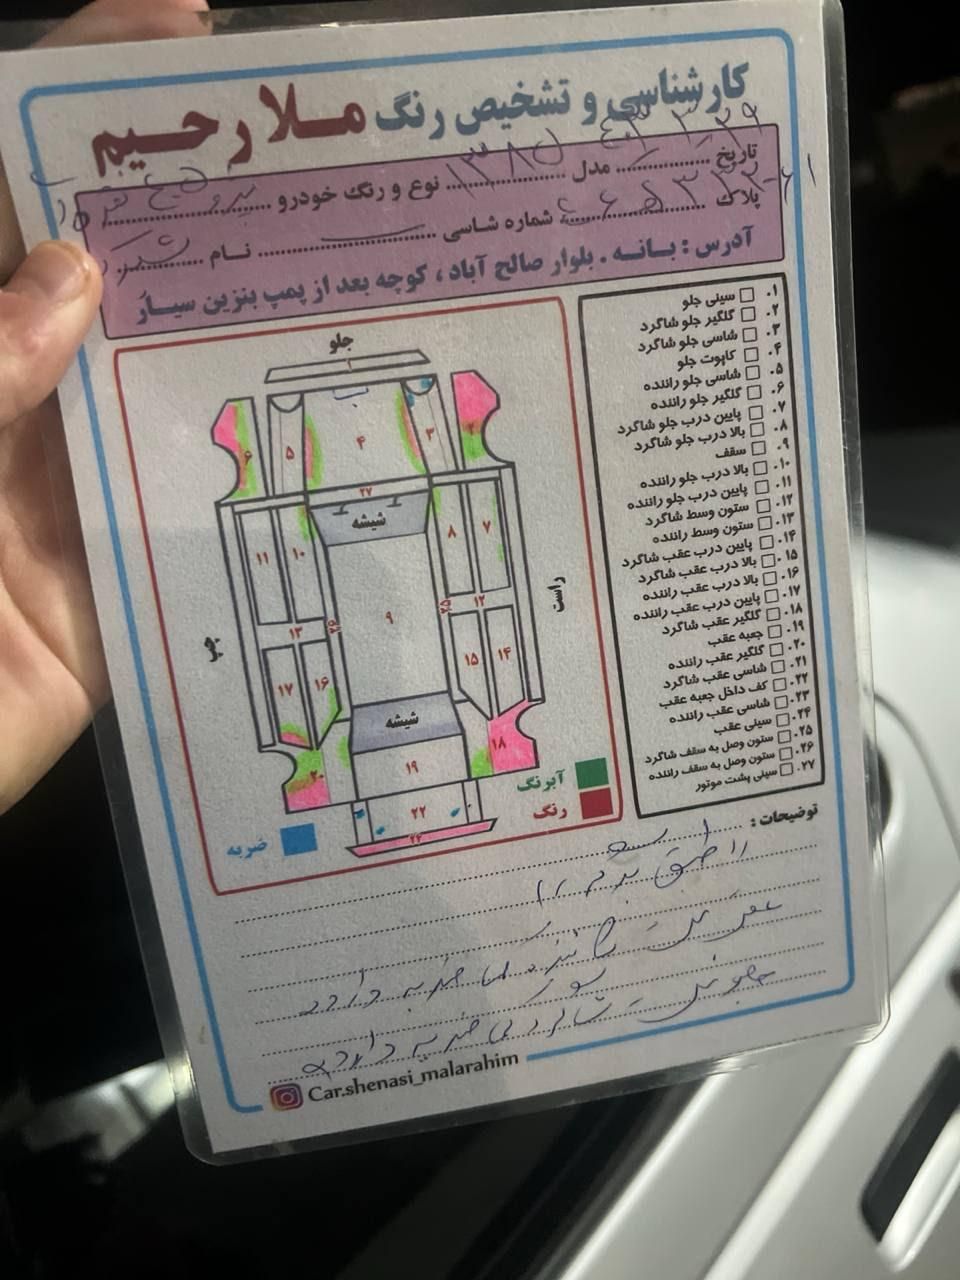 کارشناسی و تشخیص رنگ ملا رحیم
تاریخ مدل ۱۳۸۰ نوع و رنگ خودرو
پلاک شماره شاسی نام
آدرس : بانه . بلوار صالح آباد ، کوچه بعد از پمپ بنزین سیار
۰۱ سینی جلو
۰۲ گلگیر جلو شاگرد
۰۳ شاسی جلو شاگرد
۰۴ کاپوت جلو
۰۵ شاسی جلو راننده
۰۶ گلگیر جلو راننده
۰۷ پایین درب جلو شاگرد
۰۸ بالا درب جلو شاگرد
۰۹ سقف
۱۰. بالا درب جلو راننده
۱۱. پایین درب جلو راننده
۱۲. ستون وسط شاگرد
۱۳. ستون وسط راننده
۱۴. پایین درب عقب شاگرد
۱۵. بالا درب عقب شاگرد
۱۶. بالا درب عقب راننده
۱۷. پایین درب عقب راننده
۱۸. گلگیر عقب شاگرد
۱۹. جعبه عقب
۲۰. گلگیر عقب راننده
۲۱. شاسی عقب شاگرد
۲۲. کف داخل جعبه عقب
۲۳. شاسی عقب راننده
۲۴. سینی عقب
۲۵. ستون وصل به سقف شاگرد
۲۶. ستون وصل به سقف راننده
۲۷. سینی پشت موتور
جلو
۱
۲
۳
۴
۵
۶
۲۷
شیشه
۷
۸
۱۰
۱۱
راست
چپ
۹
۲۵
۲۶
۱۲
۱۳
۱۴
۱۵
۱۶
۱۷
شیشه
۱۸
۱۹
۲۰
۲۲
۲۴
آبرنگ
رنگ
ضربه
توضیحات :
ضربه دارد
شاگرد ضربه دارد
Car.shenasi_malarahim